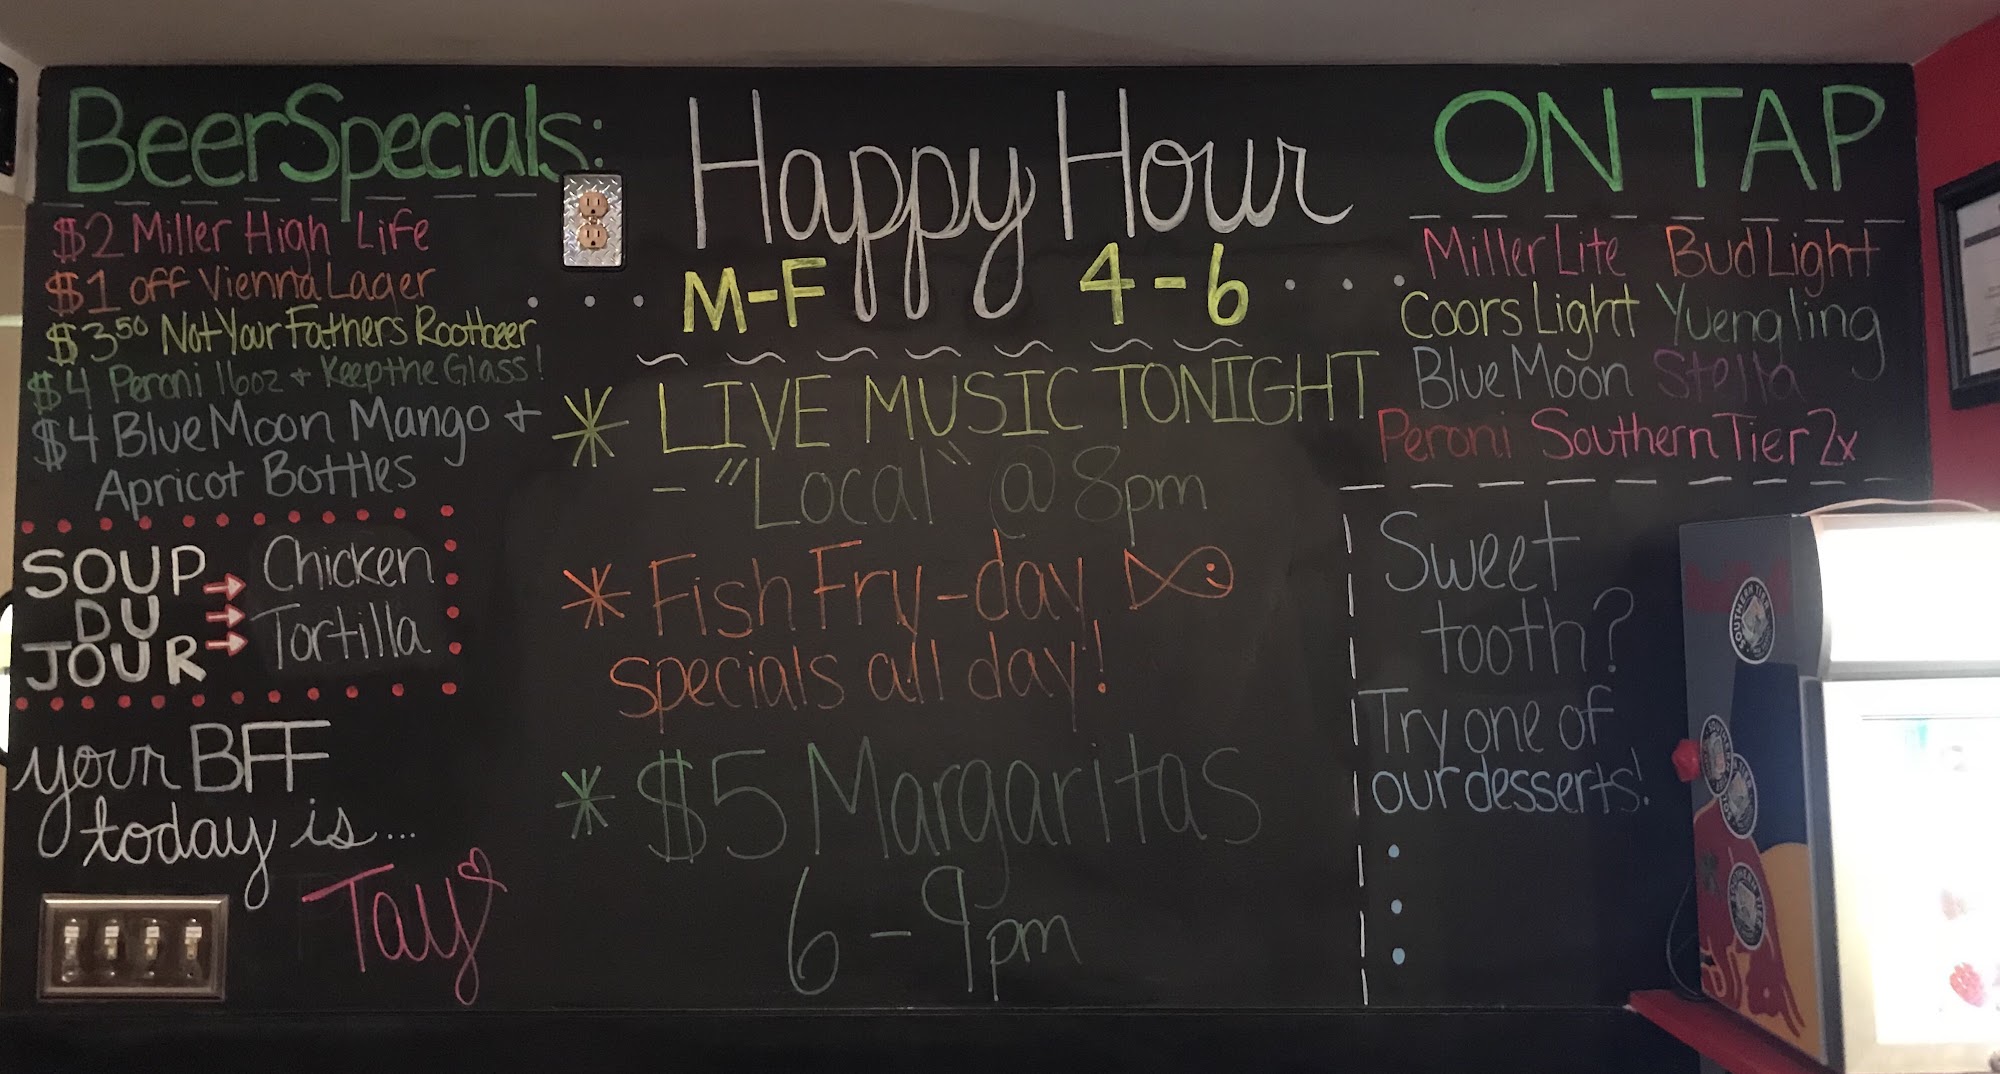 BeerSpecials:
$2 Miller High Life
$1 off Vienna Lager
$3.50 Not Your Fathers Rootbeer
$4 Peroni 16oz + Keep the Glass!
$4 Blue Moon Mango +
Apricot Bottles
SOUP
DU
JOUR
Chicken
Tortilla
your BFF
today is...
Tay
Happy Hour
M-F 4-6
* LIVE MUSIC TONIGHT
- "Local" @ 8pm
* Fish Fry-day
specials all day!
* $5 Margaritas
6-9pm
ON TAP
Miller Lite Bud Light
Coors Light Yuengling
Blue Moon Stella
Peroni Southern Tier 2x
Sweet
tooth?
Try one of
our desserts!
SOUTHERN TIER
SOUTHERN
SOUTHERN TIER